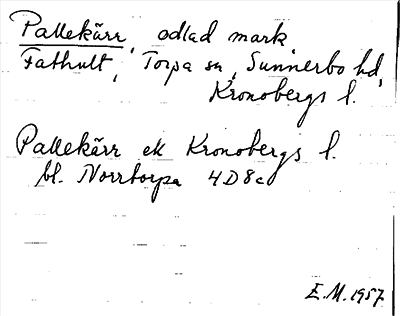 Pallekärr, odlad mark
Fathult, Torpa sn, Sunnerbo hd,
Kronobergs l.
Pallekärr ek Kronobergs l.
bl. Norrtorpa 4D8c
E.M. 1957